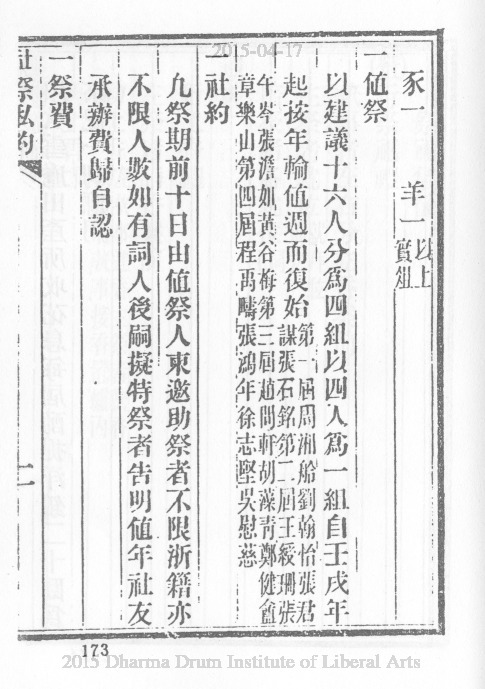 豕一　羊一以上實俎
一值祭
以建議十六人分爲四組以四人爲一組自壬戌年
起按年輪值週而復始第一屆周湘舲劉翰怡張君
謀張石銘第二屆王綬珊張
午岑張澹如黃谷梅第三屆趙問軒胡藻青鄭健盦
章樂山第四屆程禹疇張鴻年徐志堅吳慰慈
一社約
凡祭期前十日由値祭人柬邀助祭者不限浙籍亦
不限人數如有詞人後嗣擬特祭者告明値年社友
承辦費歸自認
一祭費
社祭私約
二
173
2015-04-17
2015 Dharma Drum Institute of Liberal Arts